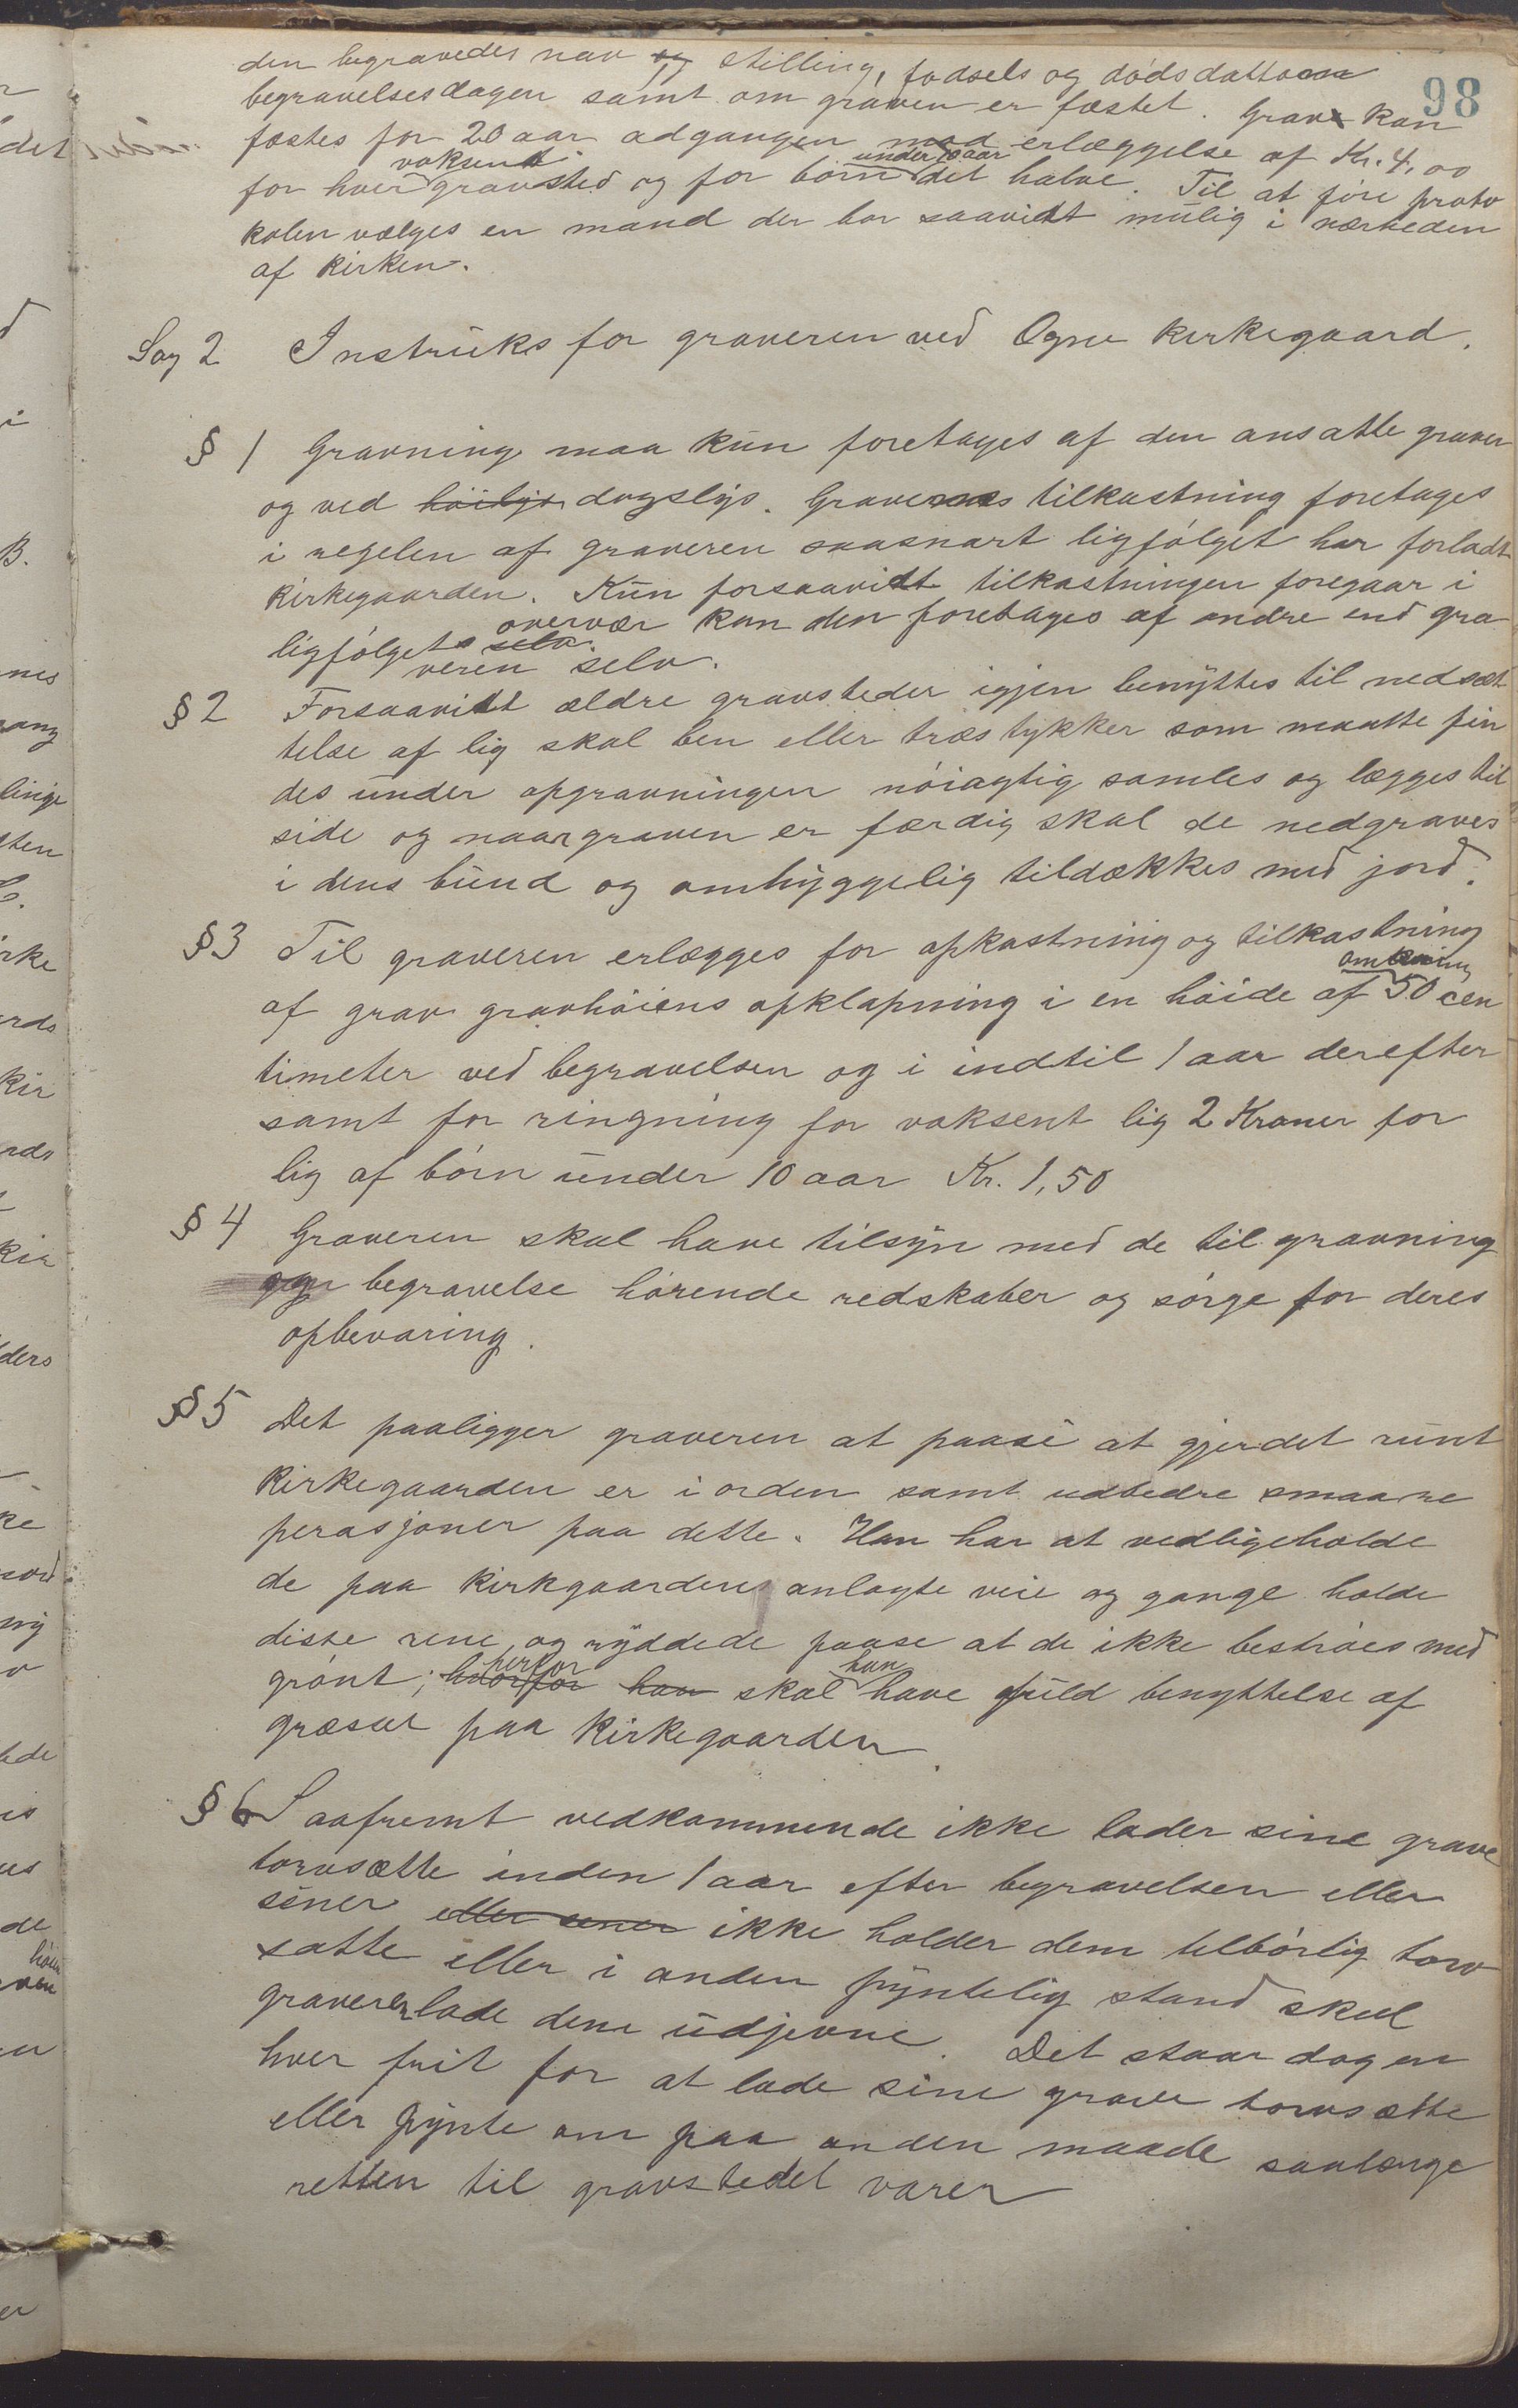 98
den begravedes nav og stilling, fødsels og dødsdatto
begravelsesdagen samt om graven er fæstet. Grav kan
fæstes for 20 aar adgangen mod erlæggelse af Kr. 4,00
vaksent under 10 aar
for hver gravsted og for børn det halve. Til at føre proto
kolen vælges en mand der bor saavidt mulig i nærheden
af kirken.
Sag 2 Instruks for graveren ved Ogne kirkegaard.
§ 1 Gravning maa kun foretages af den ansatte graver
og ved høilys dagslys. Gravenes tilkastning foretages
i regelen af graveren saasnart ligfølget har forladt
kirkegaarden. Kun forsaavidt tilkastningen foregaar i
ligfølgets selv. overvær kan den foretages af andre end gra
veren selv.
§ 2 Forsaavidt ældre gravsteder igjen benyttes til nedsæt
telse af lig skal ben eller træstykker som maatte fin
des under opgravningen nøiagtig samles og lægges til
side og naar graven er færdig skal de nedgraves
i dens bund og omhyggelig tildækkes med jord.
§ 3 Til graveren erlægges for opkastning og tilkastning
omkring
af grav gravhøiens opklapning i en høide af 50 cen
timeter ved begravelsen og i indtil 1 aar derefter
samt for ringning for vaksent lig 2 Kroner for
lig af børn under 10 aar Kr. 1,50
§ 4 Graveren skal have tilsyn med de til gravning
og begravelse hørende redskaber og sørge for deres
opbevaring.
§ 5 Det paaligger graveren at paase at gjerdet runt
kirkegaarden er i orden samt udbedre smaa re
perasjoner paa dette. Han har at vedligeholde
de paa kirkgaardens anlagte veie og gange holde
diste rene, og ryddede paase at de ikke bestrøes med
herfor han
grønt; hvorfor han skal have fuld benyttelse af
græsset paa kirkegaarden.
§ 6 Saafremt vedkommende ikke lader sine grave
torvsætte inden 1 aar efter begravelsen eller
sener eller sener ikke holder dem tilbørlig torv
satte eller i anden pyntelig stand skal
graveren lade dem udjevne. Det staar dog en
hver frit for at lade sine grave torvsætte
eller pynte om paa anden maade saalænge
retten til gravstedet varer